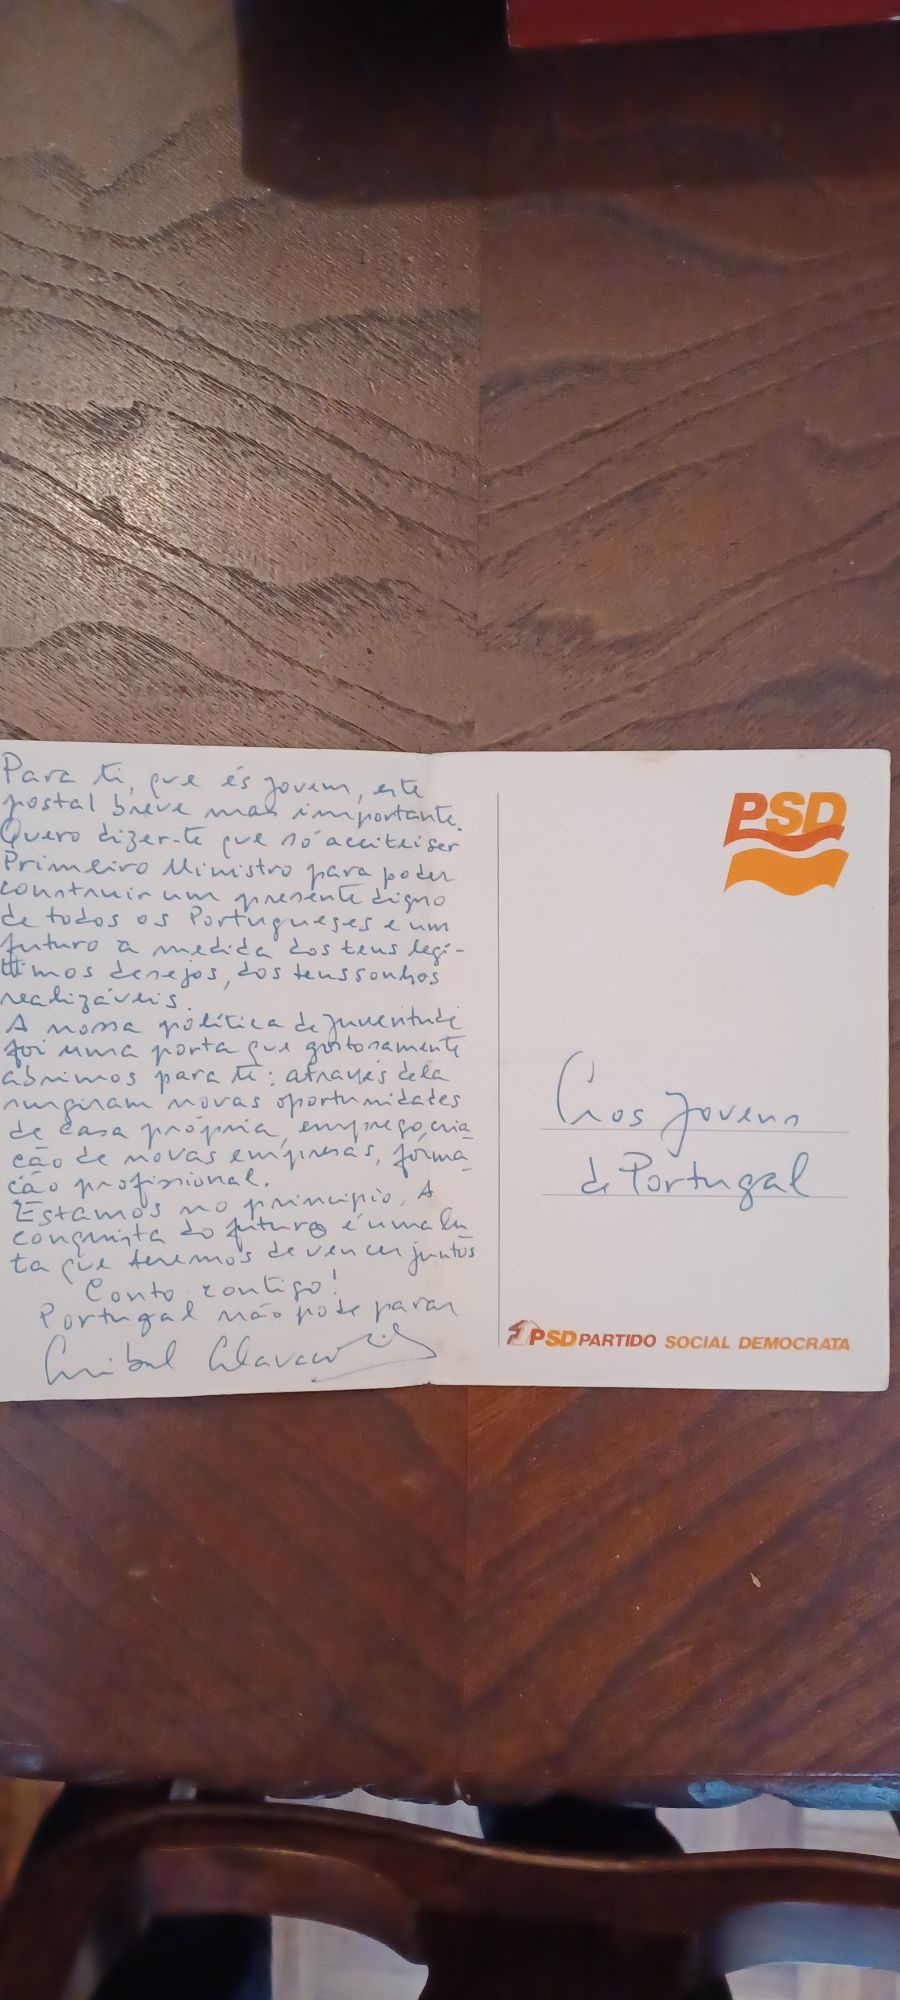 Para ti, que és jovem, este
postal breve mas importante.
Quero dizer-te que só aceitei ser
Primeiro Ministro para poder
construir um presente digno
de todos os Portugueses e um
futuro a medida dos teus legí-
timos desejos, dos teus sonhos
realizáveis.
A nossa política de juventude
foi uma porta que gostosamente
abrimos para ti: através dela
surgiram novas oportunidades
de casa própria, emprego, cria
ção de novas empresas, forma
ção profissional.
Estamos no princípio. A
conquista do futuro é uma lu
ta que teremos de vencer juntos
Conto contigo!
Portugal não pode parar
Aníbal Cavaco Silva
PSD
Aos jovens
de Portugal
PSD PARTIDO SOCIAL DEMOCRATA